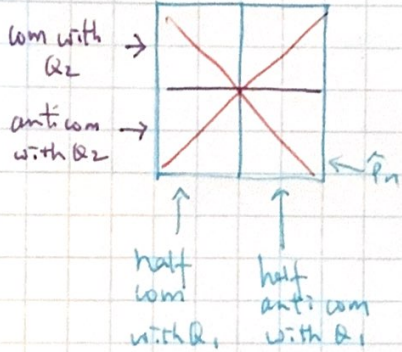 com with
Q2
anti com
with Q2
P̂n
half
com
with Q1
half
anti com
with Q1